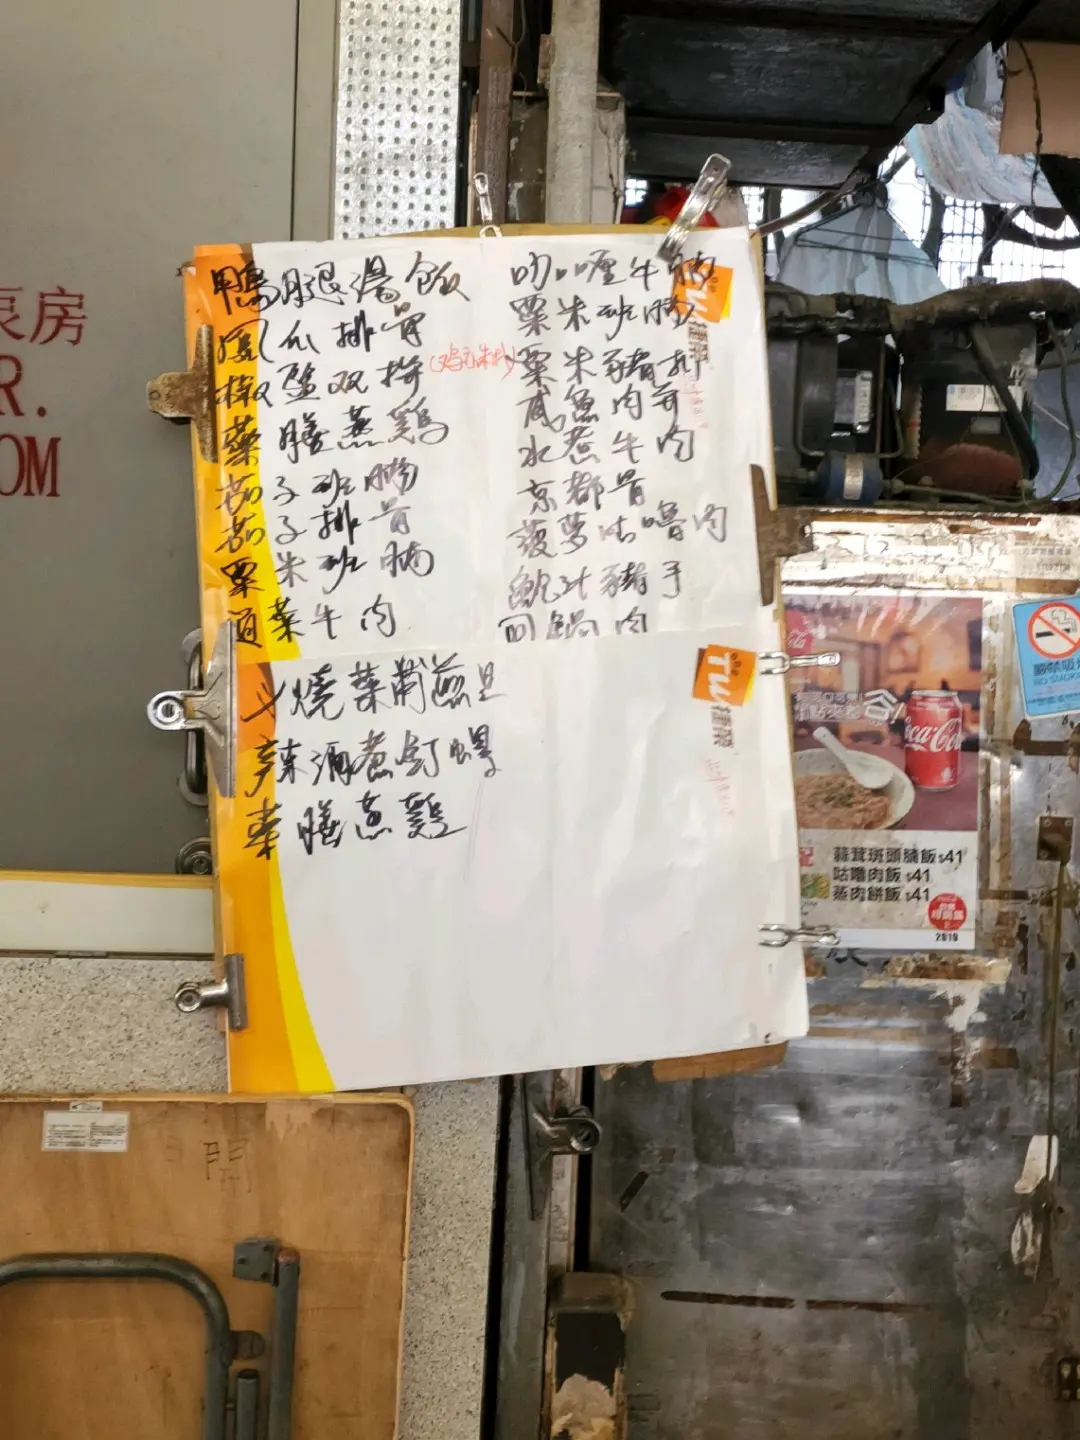 泵房
R.
OOM
鴨腿湯飯
鳳爪排骨
椒盐双拼
藥膳蒸鸡
茄子班腩
茄子排骨
粟米班腩
通菜牛肉
叻
牛腩
粟米班腩
粟米豬扒
咸魚肉餅
水煮牛肉
京都骨
菠萝咕嚕肉
鮑汁豬手
回鍋肉
燒菜
辣酒煮釘螺
藥膳蒸鸡
TW
捷榮
TW
捷榮
開
Coca-Cola
蒜茸斑頭腩飯$41
咕嚕肉飯$41
蒸肉餅飯$41
2019
嚴禁吸
NO SMOKING